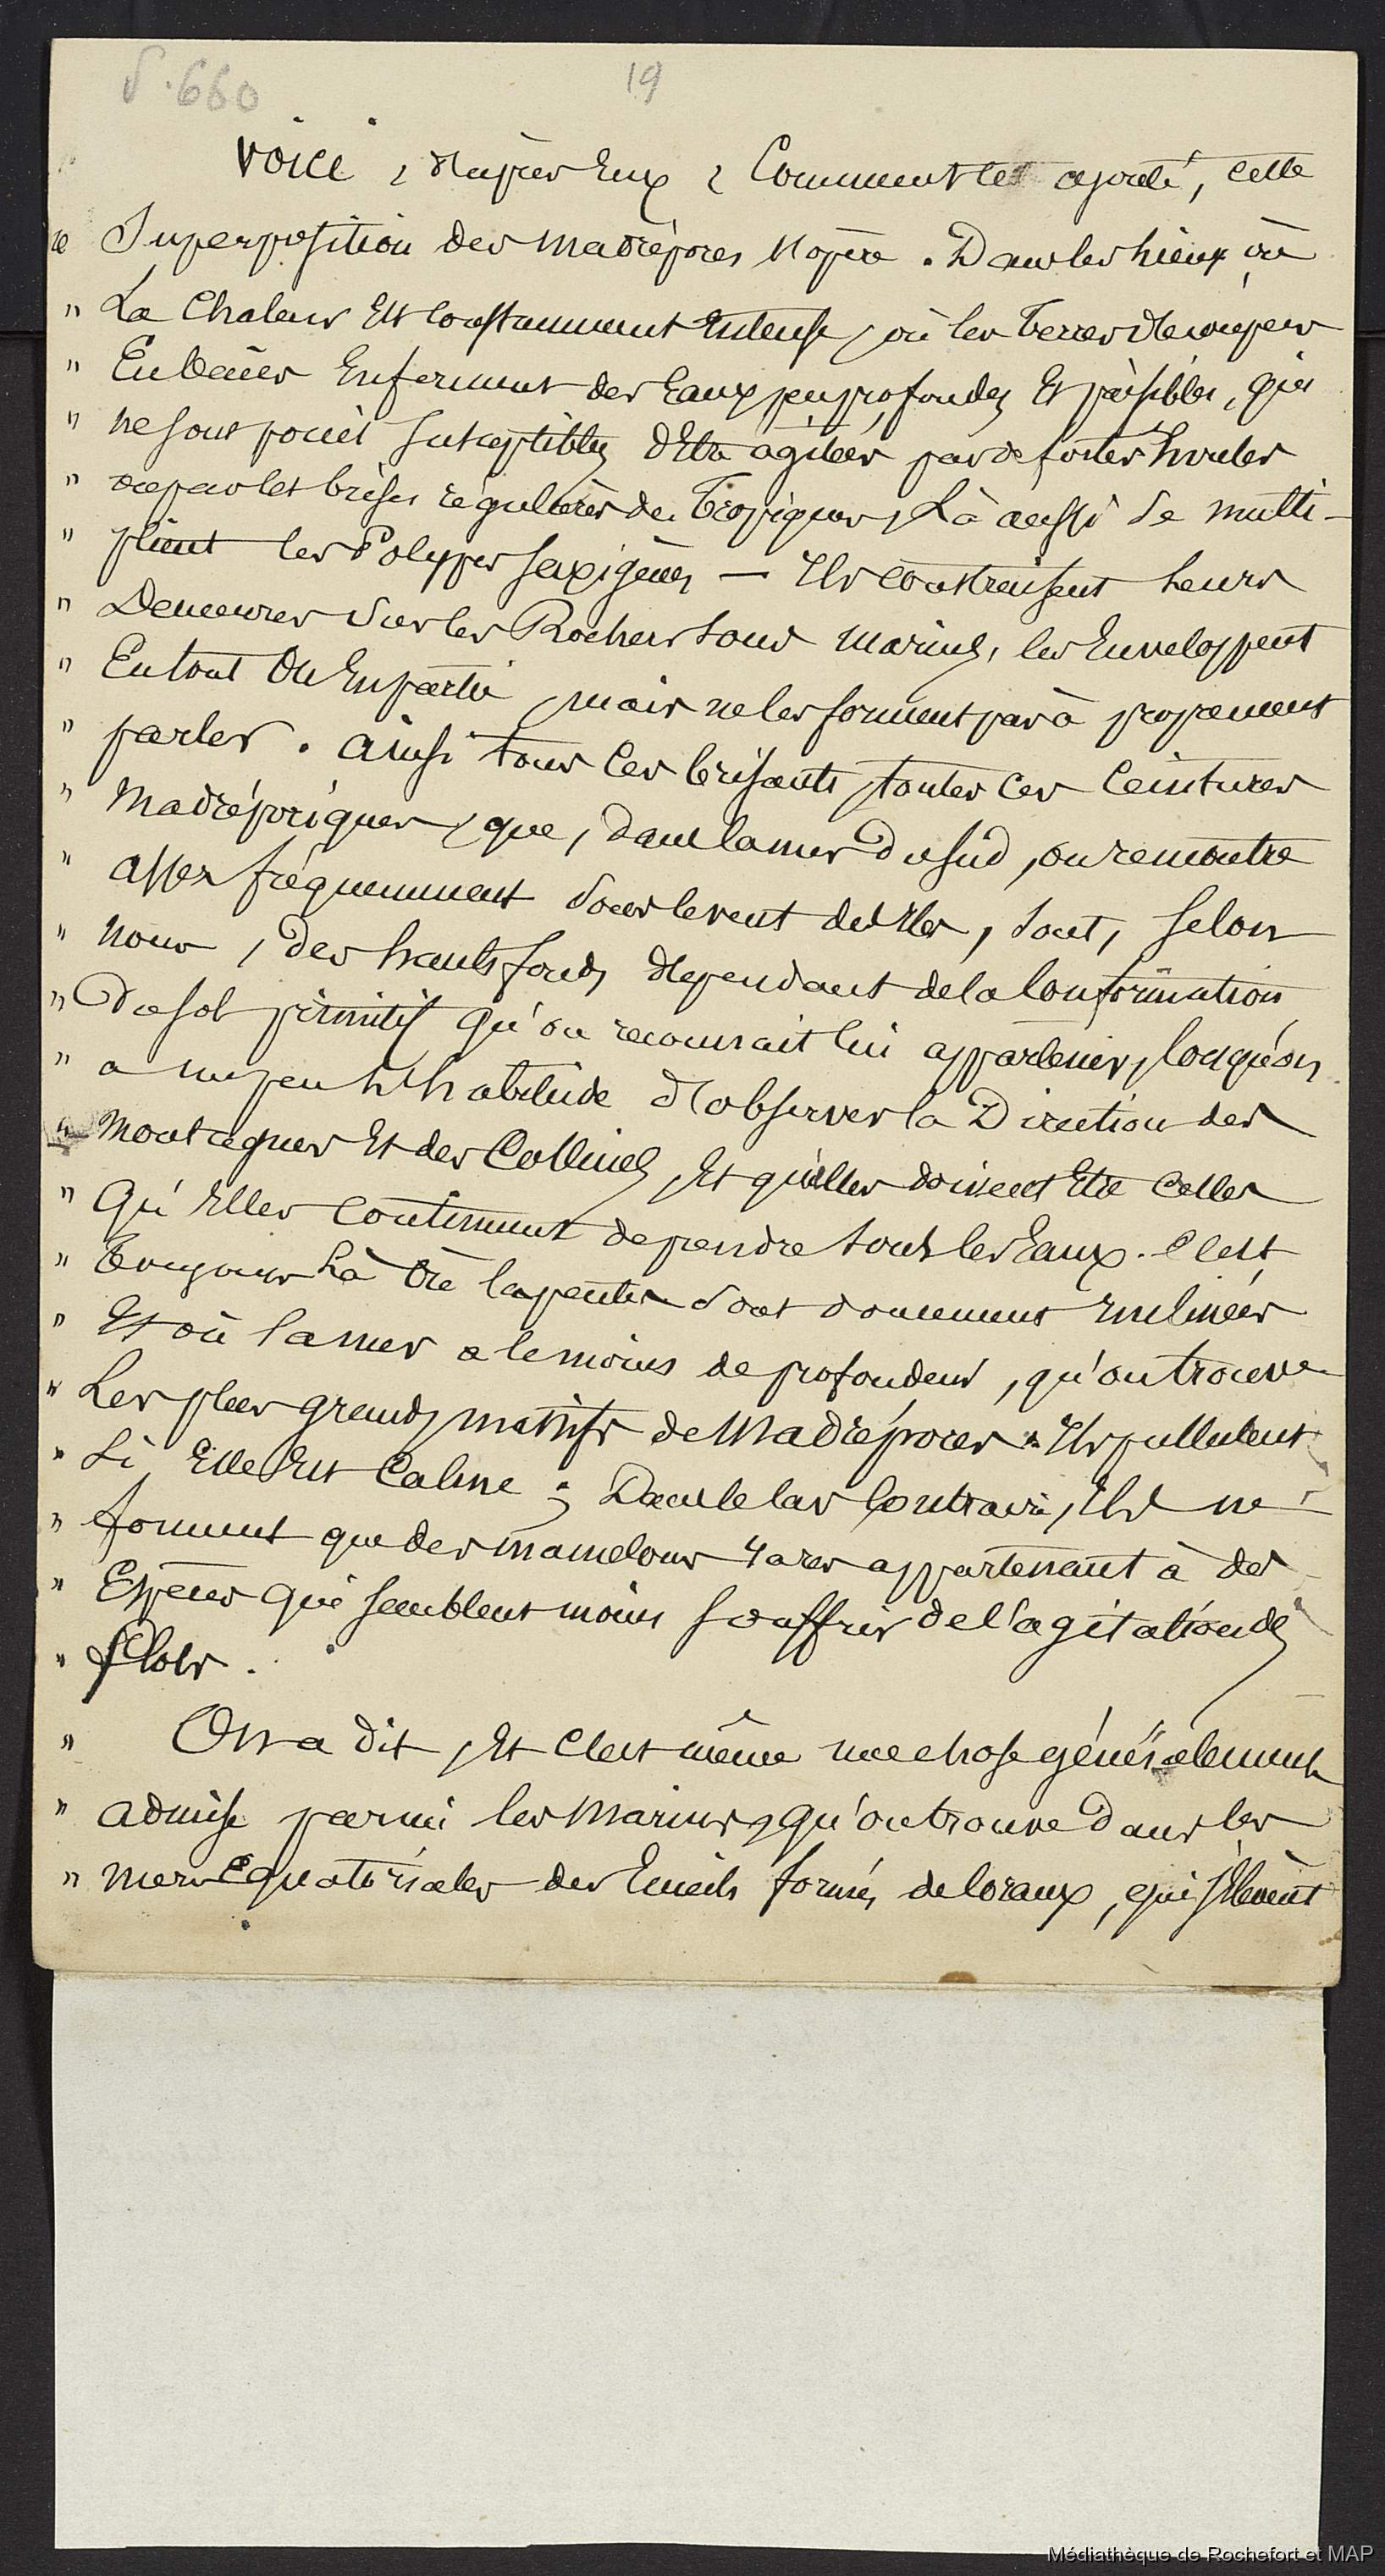 S. 660
19
Voici, d'après Eux, Comment
" Superposition des madrépores s'opère. Dans les Lieux où
" La Chaleur Est Constamment Intense, où les Terres découpées
" En baies Enferment des Eaux peu profondes Et paisibles, qui
" ne sont point susceptibles d'Etre agitées par de fortes houles
" ou par les brises régulières des Tropiques, Là aussi se multi-
" plient les Polypes saxigènes — Ils Construisent Leurs
" Demeures Sur les Rochers sous marins, les Enveloppent
" En tout Ou En partie, mais ne les forment pas à proprement
" parler. Ainsi tous Ces brisants, toutes Ces Ceintures
" Madréporiques, que, dans la mer Du Sud, on rencontre
" assez fréquemment Sous le vent des Iles, sont, selon
" nous, Des hauts fonds dépendant de la Conformation
" Du sol primitif qu'on reconnait lui appartenir, lorsqu'on
" a un peu L'habitude d'observer la Direction des
" Montagnes Et des Collines, Et qu'elles doivent Etre Celles
" Qu'Elles Continuent de prendre sous les Eaux. C'est
" Toujours Là Où les pentes Sont doucement inclinées
" Et où la mer a le moins de profondeur, qu'on trouve
" Les plus grands massifs de Madrépores. Ils pullulent
" Si Elle Est Calme ; Dans le Cas Contraire, Ils ne
" forment que des mamelons rares appartenant à des
" Espèces Qui semblent moins souffrir de l'agitation des
" flots.
" On a dit, Et C'est même une chose généralement
" admise parmi les Marins, qu'on trouve Dans les
" mers Equatoriales des Ecueils formés de Coraux, qui s'Elèvent
Médiathèque de Rochefort et MAP